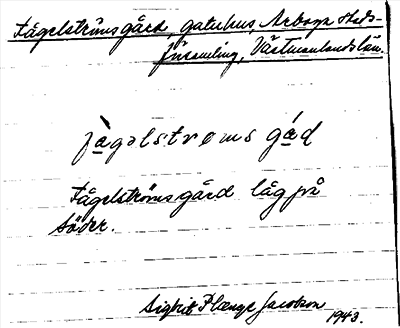 Fågelströmsgård, gatuhus, Arboga stads-
församling, Västmanlands län.
fὰgəlstrøms gά̱d
Fågelströms gård låg på
söder.
Sigrit Plænge Jacobson
1943.